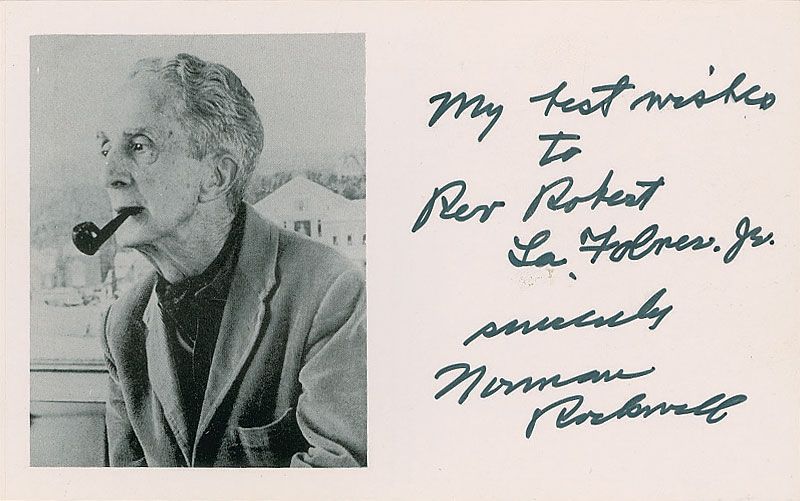 My best wishes
to
Rev Robert
La Folnes. Jr.
sincerely
Norman
Rockwell